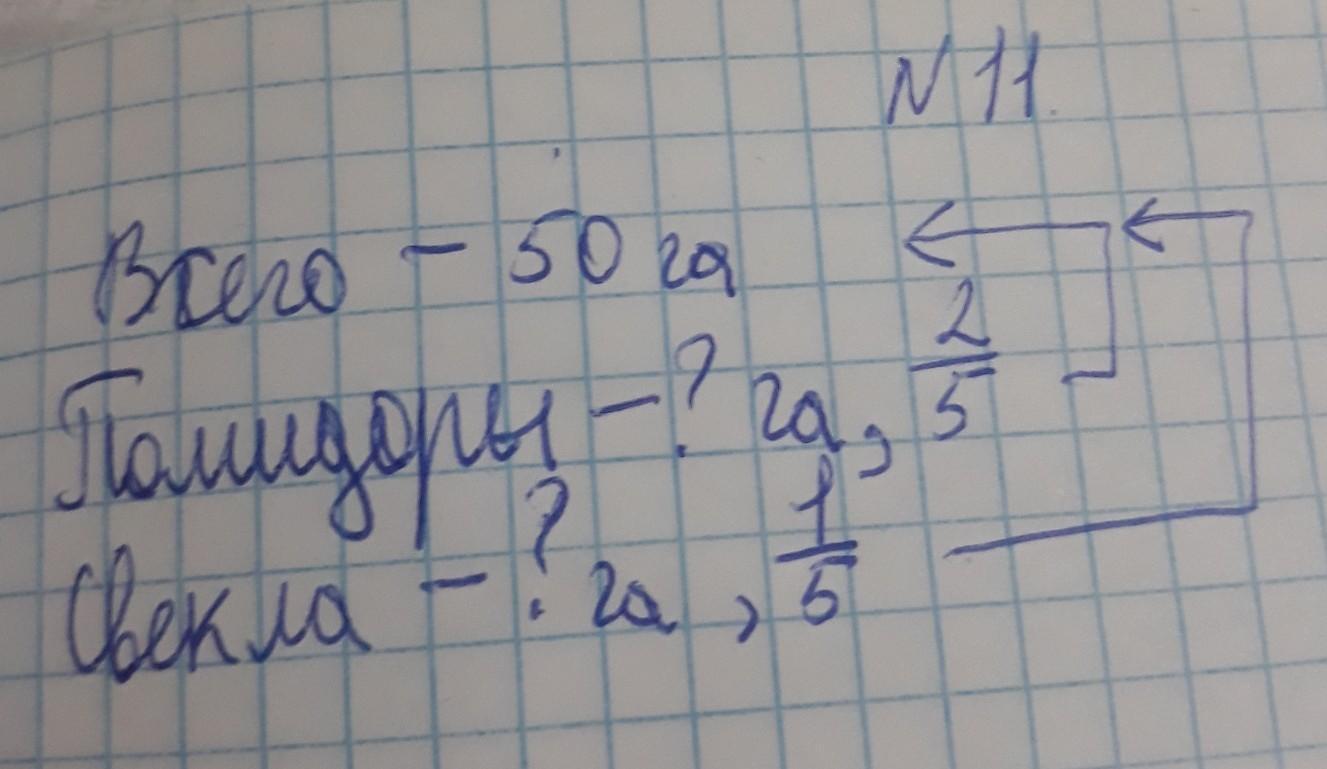 N 11.
Всего - 50 га
Помидоры - ? га, 2/5
Свекла - ? га, 1/5